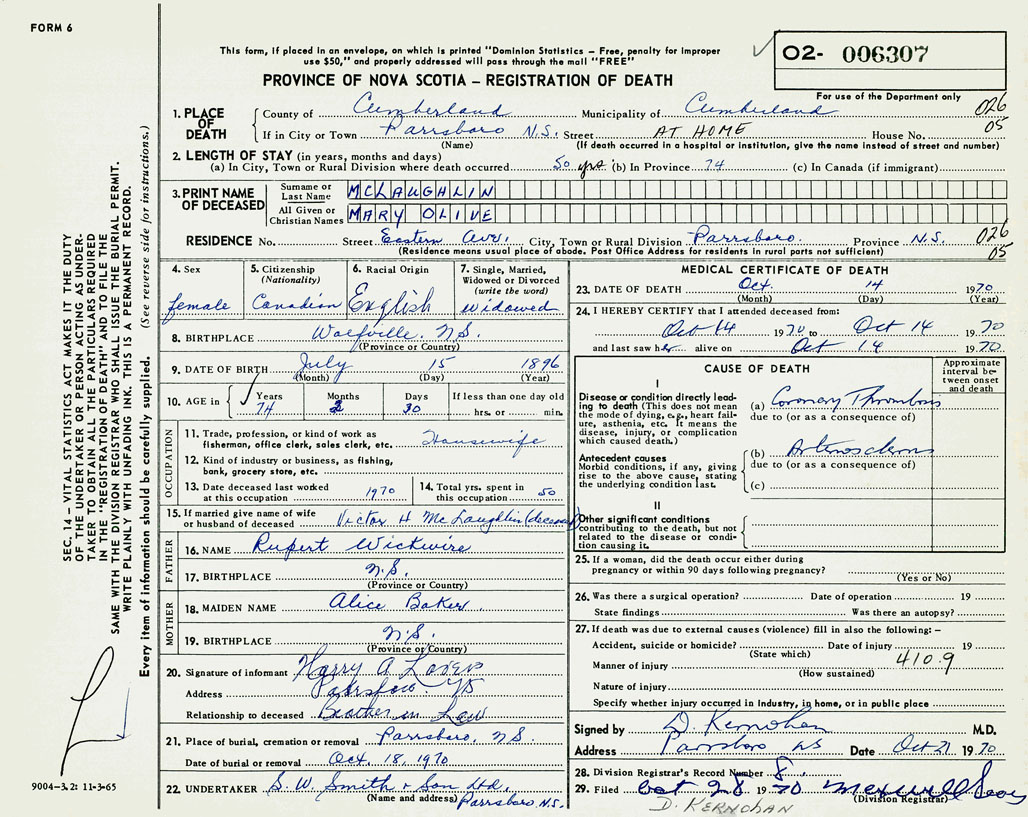 FORM 6
This form, if placed in an envelope, on which is printed "Dominion Statistics – Free, penalty for improper
use $50," and properly addressed will pass through the mail "FREE"
PROVINCE OF NOVA SCOTIA – REGISTRATION OF DEATH
02- 006307
For use of the Department only
1. PLACE OF DEATH
County of Cumberland Municipality of Cumberland 026
If in City or Town Parrsboro N.S. Street AT HOME House No. 05
(Name) (If death occurred in a hospital or institution, give the name instead of street and number)
2. LENGTH OF STAY (in years, months and days)
(a) In City, Town or Rural Division where death occurred 50 yrs (b) In Province 74 (c) In Canada (if immigrant)
3. PRINT NAME OF DECEASED
Surname or Last Name MCLAUGHLIN
All Given or Christian Names MARY OLIVE
RESIDENCE No. Street Eastern Ave, City, Town or Rural Division Parrsboro. Province N.S. 026
(Residence means usual place of abode. Post Office Address for residents in rural parts not sufficient) 05
4. Sex
female
5. Citizenship
(Nationality)
Canadian
6. Racial Origin
English
7. Single, Married,
Widowed or Divorced
(write the word)
widowed
8. BIRTHPLACE Wolfville, N.S.
(Province or Country)
9. DATE OF BIRTH July 15 1896
(Month) (Day) (Year)
10. AGE in Years Months Days If less than one day old
74 30 hrs. or min.
OCCUPATION
11. Trade, profession, or kind of work as
fisherman, office clerk, sales clerk, etc. Housewife
12. Kind of industry or business, as fishing,
bank, grocery store, etc.
13. Date deceased last worked
at this occupation 1970
14. Total yrs. spent in
this occupation 50
15. If married give name of wife
or husband of deceased Victor H McLaughlin
FATHER
16. NAME Rupert Wickwire
17. BIRTHPLACE N.S.
(Province or Country)
MOTHER
18. MAIDEN NAME Alice Baker.
19. BIRTHPLACE N.S.
(Province or Country)
20. Signature of informant Harry A
Address
Relationship to deceased Brother in Law
21. Place of burial, cremation or removal Parrsboro, N.S.
Date of burial or removal Oct. 18, 1970
22. UNDERTAKER S. W. Smith + Son Ltd,
(Name and address) Parrsboro, N.S.
MEDICAL CERTIFICATE OF DEATH
23. DATE OF DEATH Oct. 14 1970
(Month) (Day) (Year)
24. I HEREBY CERTIFY that I attended deceased from:
Oct 14 1970 to Oct 14 1970
and last saw her alive on Oct 14 1970
CAUSE OF DEATH
Approximate
interval be-
tween onset
and death
I
Disease or condition directly lead-
ing to death (This does not mean
the mode of dying, e.g., heart fail-
ure, asthenia, etc. It means the
disease, injury, or complication
which caused death.)
(a) Coronary Thrombosis
due to (or as a consequence of)
Antecedent causes
Morbid conditions, if any, giving
rise to the above cause, stating
the underlying condition last.
(b)
due to (or as a consequence of)
(c)
II
Other significant conditions
contributing to the death, but not
related to the disease or condi-
tion causing it.
25. If a woman, did the death occur either during
pregnancy or within 90 days following pregnancy?
(Yes or No)
26. Was there a surgical operation? Date of operation 19
State findings Was there an autopsy?
27. If death was due to external causes (violence) fill in also the following: –
Accident, suicide or homicide? Date of injury 19
(State which) 410.9
Manner of injury
(How sustained)
Nature of injury
Specify whether injury occurred in Industry, in home, or in public place
Signed by D. Kernohan M.D.
Address Parrsboro NS Date Oct 21 1970
28. Division Registrar's Record Number 8.
29. Filed Oct 28 1970
(Division Registrar)
D. KERNOHAN
SEC. 14 – VITAL STATISTICS ACT MAKES IT THE DUTY
OF THE UNDERTAKER OR PERSON ACTING AS UNDER-
TAKER TO OBTAIN ALL THE PARTICULARS REQUIRED
IN THE "REGISTRATION OF DEATH" AND TO FILE THE
SAME WITH THE DIVISION REGISTRAR WHO SHALL ISSUE THE BURIAL PERMIT.
WRITE PLAINLY WITH UNFADING INK. THIS IS A PERMANENT RECORD.
Every item of information should be carefully supplied. (See reverse side for instructions.)
9004-3.2: 11-3-65